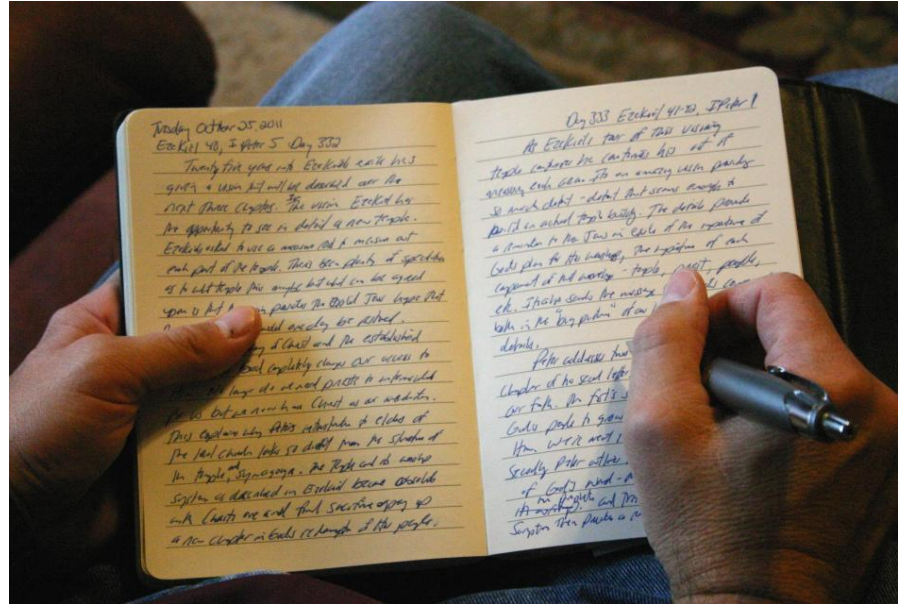 Tuesday October 25, 2011
Ezekiel 40, I Peter 5 Day 332
Twenty five years into Ezekiel's exile he's
given a vision that will be described over the
next three chapters. In this vision Ezekiel has
the opportunity to see in detail a new temple.
Ezekiel asked to use a measure rod to measure out
each part of the temple. There's been plenty of speculation
as to what temple this might be but what can be agreed
upon is that provides the exiled Jews hope that
would one day be restored.
of Christ and the established
completely changes our access to
No longer do we need priests to
for us but we now have Christ as our mediator.
This explains why Peter's to elders of
the local church looks so different from the situation of
the temple and synagogue. The temple and its worship
system as described in Ezekiel became obsolete
with Christ's one and final sacrifice opening up
a new chapter in God's redemption of His people.
Day 333 Ezekiel 41-42, II Peter 1
As Ezekiel's tour of this visionary
temple continues he continues his out of
measuring each area. It's an amazing vision providing
so much detail - detail that seems enough to
build an actual temple building. The details provide
a reminder to the Jews in exile of the importance of
God's plan to His worship, the importance of each
component of that worship - temple, priest, people,
etc. It also sends the message
both in the "big picture" of our
details.
Peter addresses two
chapter of his second letter
our faith. The first is
God's people to grow
Him. We're next
Secondly Peter
of God's word -
and
Scripture then provides a